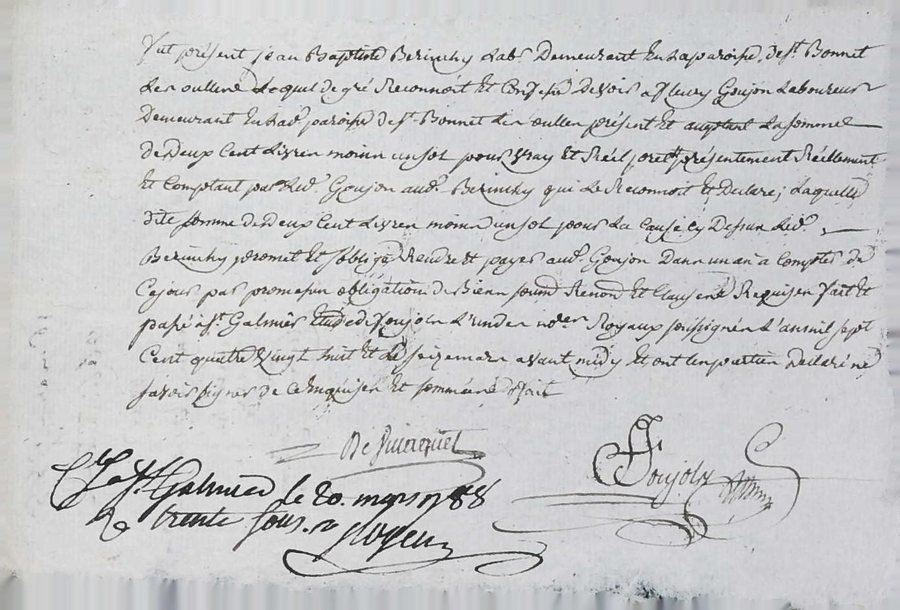 Fut présent Jean Baptiste Berinchy Lab^r Demeurant En la paroisse de S^t. Bonnet
Les oulles Lequel de gré Reconnoit Et Confesse Devoir a fleury Goujon Laboureur
Demeurant En lad^e paroisse de S^t. Bonnet Les oulles présent Et aceptant La somme
de Deux Cent Livres moins un sol pour Vray Et Réel prett présentement Réellement
Et Comptant par Led^t. Goujon aud^t. Berinchy qui Le Reconnoit Et Declare, Laquelle
dite somme de Deux Cent Livres moins un sol pour La Cause Cy Dessus Led^t.
Berinchy promet Et s'oblige Rendre Et payer aud^t. Goujon Dans un an a Compter de
Ce jour par promesses obligation de Biens soumd Renond Et Clauses Requises fait Et
passé a S^t. Galmier Etude de Poujoly L'un des no^res Royaux soussignés L'an mil sept
Cent quatre Vingt huit Et Le seize mars avant midy Et ont Les parties Declaré ne
savoir signer de Ce Enquises Et sommées fait
Poujoly
Cllé a S^t. Galmier le 20. mars 1788
R trente sous.